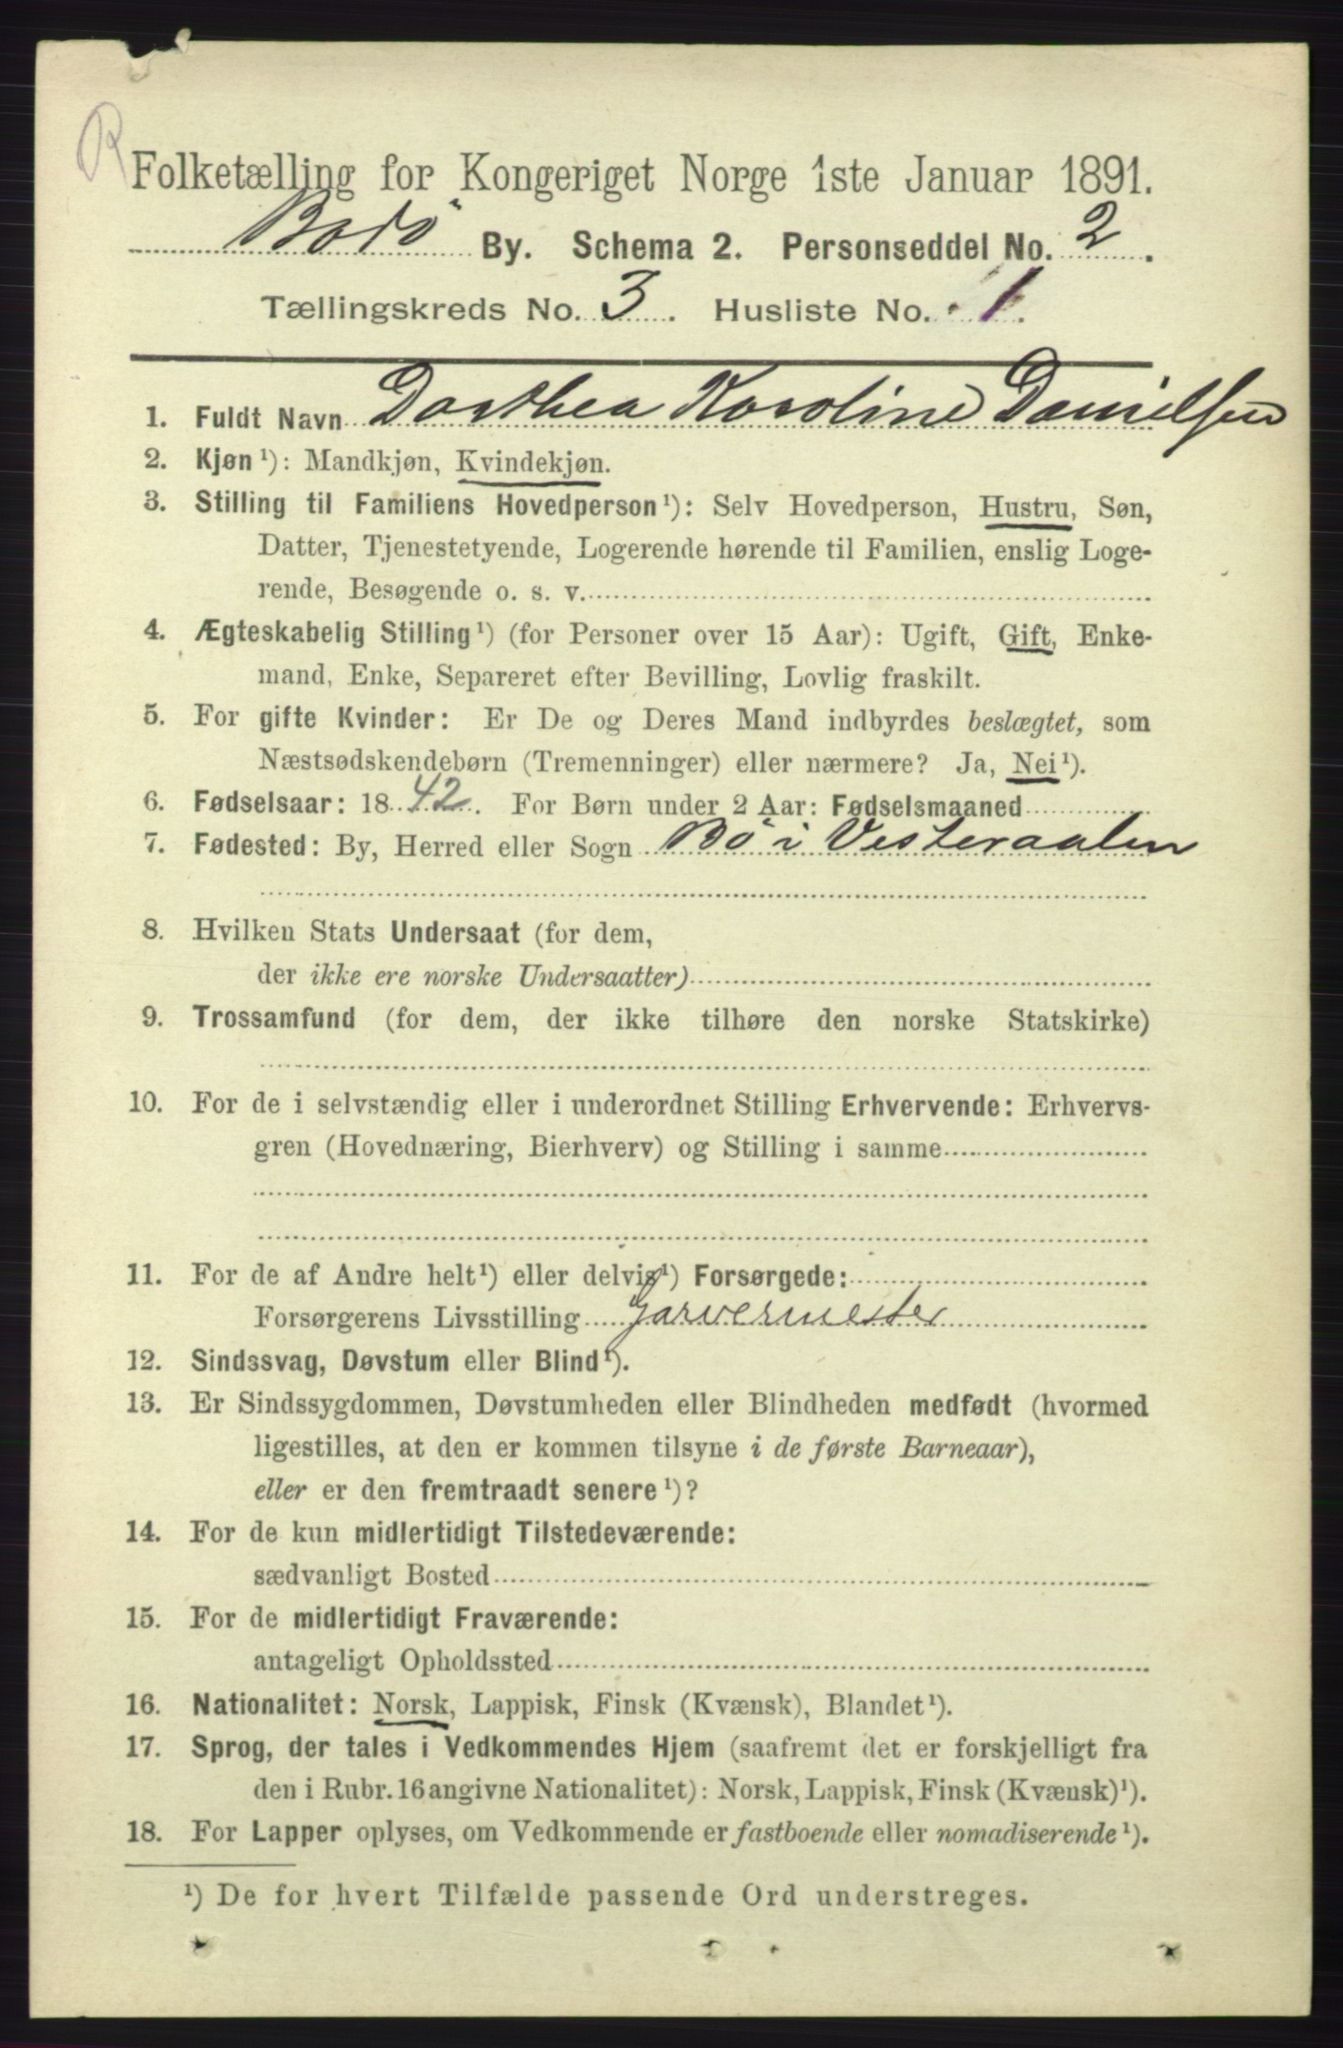 R
Folketælling for Kongeriget Norge 1ste Januar 1891.
Bodö By. Schema 2. Personseddel No. 2.
Tællingskreds No. 3. Husliste No. 1.
1. Fuldt Navn Dorthea Karoline Danielsen
2. Kjøn¹): Mandkjøn, Kvindekjøn.
3. Stilling til Familiens Hovedperson¹): Selv Hovedperson, Hustru, Søn,
Datter, Tjenestetyende, Logerende hørende til Familien, enslig Loge-
rende, Besøgende o. s. v.
4. Ægteskabelig Stilling¹) (for Personer over 15 Aar): Ugift, Gift, Enke-
mand, Enke, Separeret efter Bevilling, Lovlig fraskilt.
5. For gifte Kvinder: Er De og Deres Mand indbyrdes beslægtet, som
Næstsødskendebørn (Tremenninger) eller nærmere? Ja, Nei¹).
6. Fødselsaar: 1842. For Børn under 2 Aar: Fødselsmaaned
7. Fødested: By, Herred eller Sogn Bö i Vesteraalen
8. Hvilken Stats Undersaat (for dem,
der ikke ere norske Undersaatter)
9. Trossamfund (for dem, der ikke tilhøre den norske Statskirke)
10. For de i selvstændig eller i underordnet Stilling Erhvervende: Erhvervs-
gren (Hovednæring, Bierhverv) og Stilling i samme
11. For de af Andre helt¹) eller delvis¹) Forsørgede:
Forsørgerens Livsstilling Garvermester
12. Sindssvag, Døvstum eller Blind¹).
13. Er Sindssygdommen, Døvstumheden eller Blindheden medfødt (hvormed
ligestilles, at den er kommen tilsyne i de første Barneaar),
eller er den fremtraadt senere¹)?
14. For de kun midlertidigt Tilstedeværende:
sædvanligt Bosted
15. For de midlertidigt Fraværende:
antageligt Opholdssted
16. Nationalitet: Norsk, Lappisk, Finsk (Kvænsk), Blandet¹).
17. Sprog, der tales i Vedkommendes Hjem (saafremt det er forskjelligt fra
den i Rubr. 16 angivne Nationalitet): Norsk, Lappisk, Finsk (Kvænsk)¹).
18. For Lapper oplyses, om Vedkommende er fastboende eller nomadiserende¹).
¹) De for hvert Tilfælde passende Ord understreges.